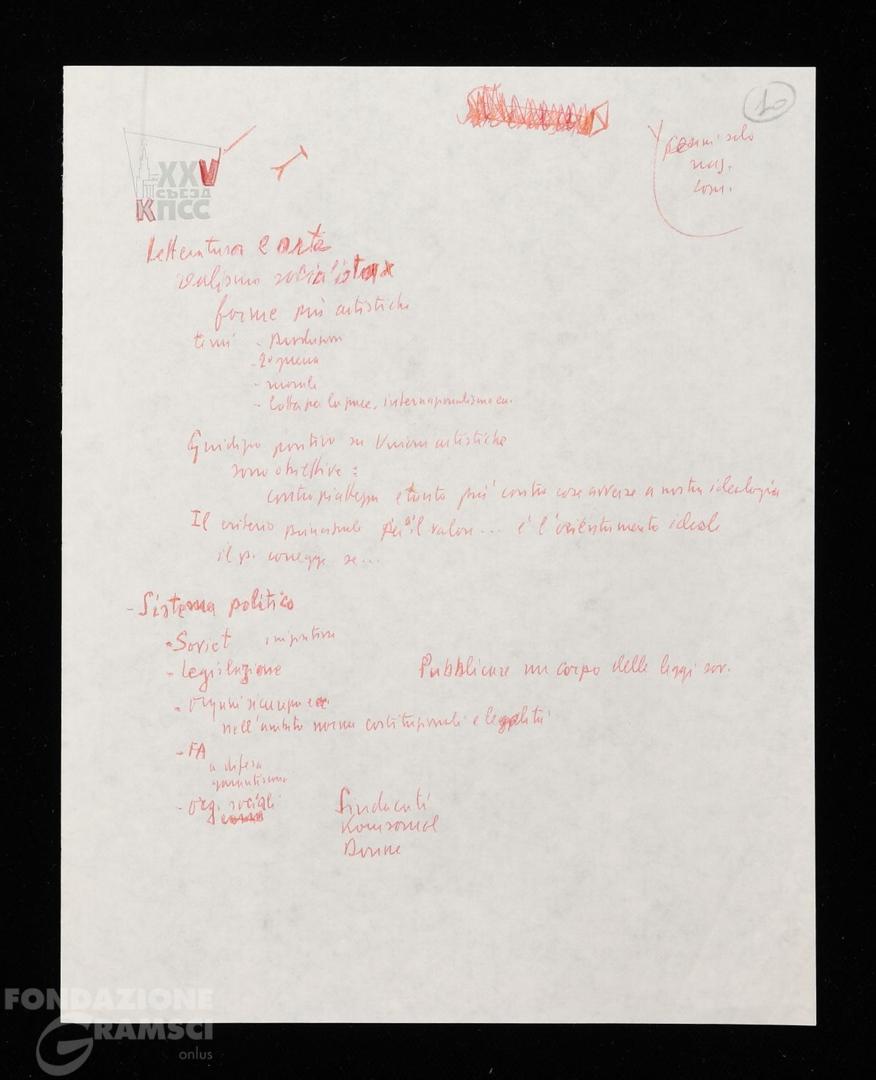 10
solo
XXV
СЪЕЗД
КПСС
Letteratura e arte
realismo socialista
forme più artistiche
temi - Produzione
- 2ª guerra
- morale
- lotta per la pace, internazionalismo ecc.
Giudizio positivo su Unioni artistiche
sono obiettive:
contro piattezza e tanto più contro cose avverse a nostra ideologia
Il criterio principale per il valore... è l'orientamento ideale
il p. corregge se...
- Sistema politico
- Soviet
- Legislazione
Pubblicare un corpo delle leggi sov.
- Organi sicurezza ecc.
nell'ambito norma costituzionali e legalità
- FA
a difesa
- Org. sociali
Sindacati
Komsomol
Donne
FONDAZIONE
GRAMSCI
onlus